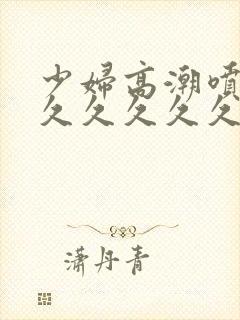 少婦高潮噴
久久久久久
潇丹青